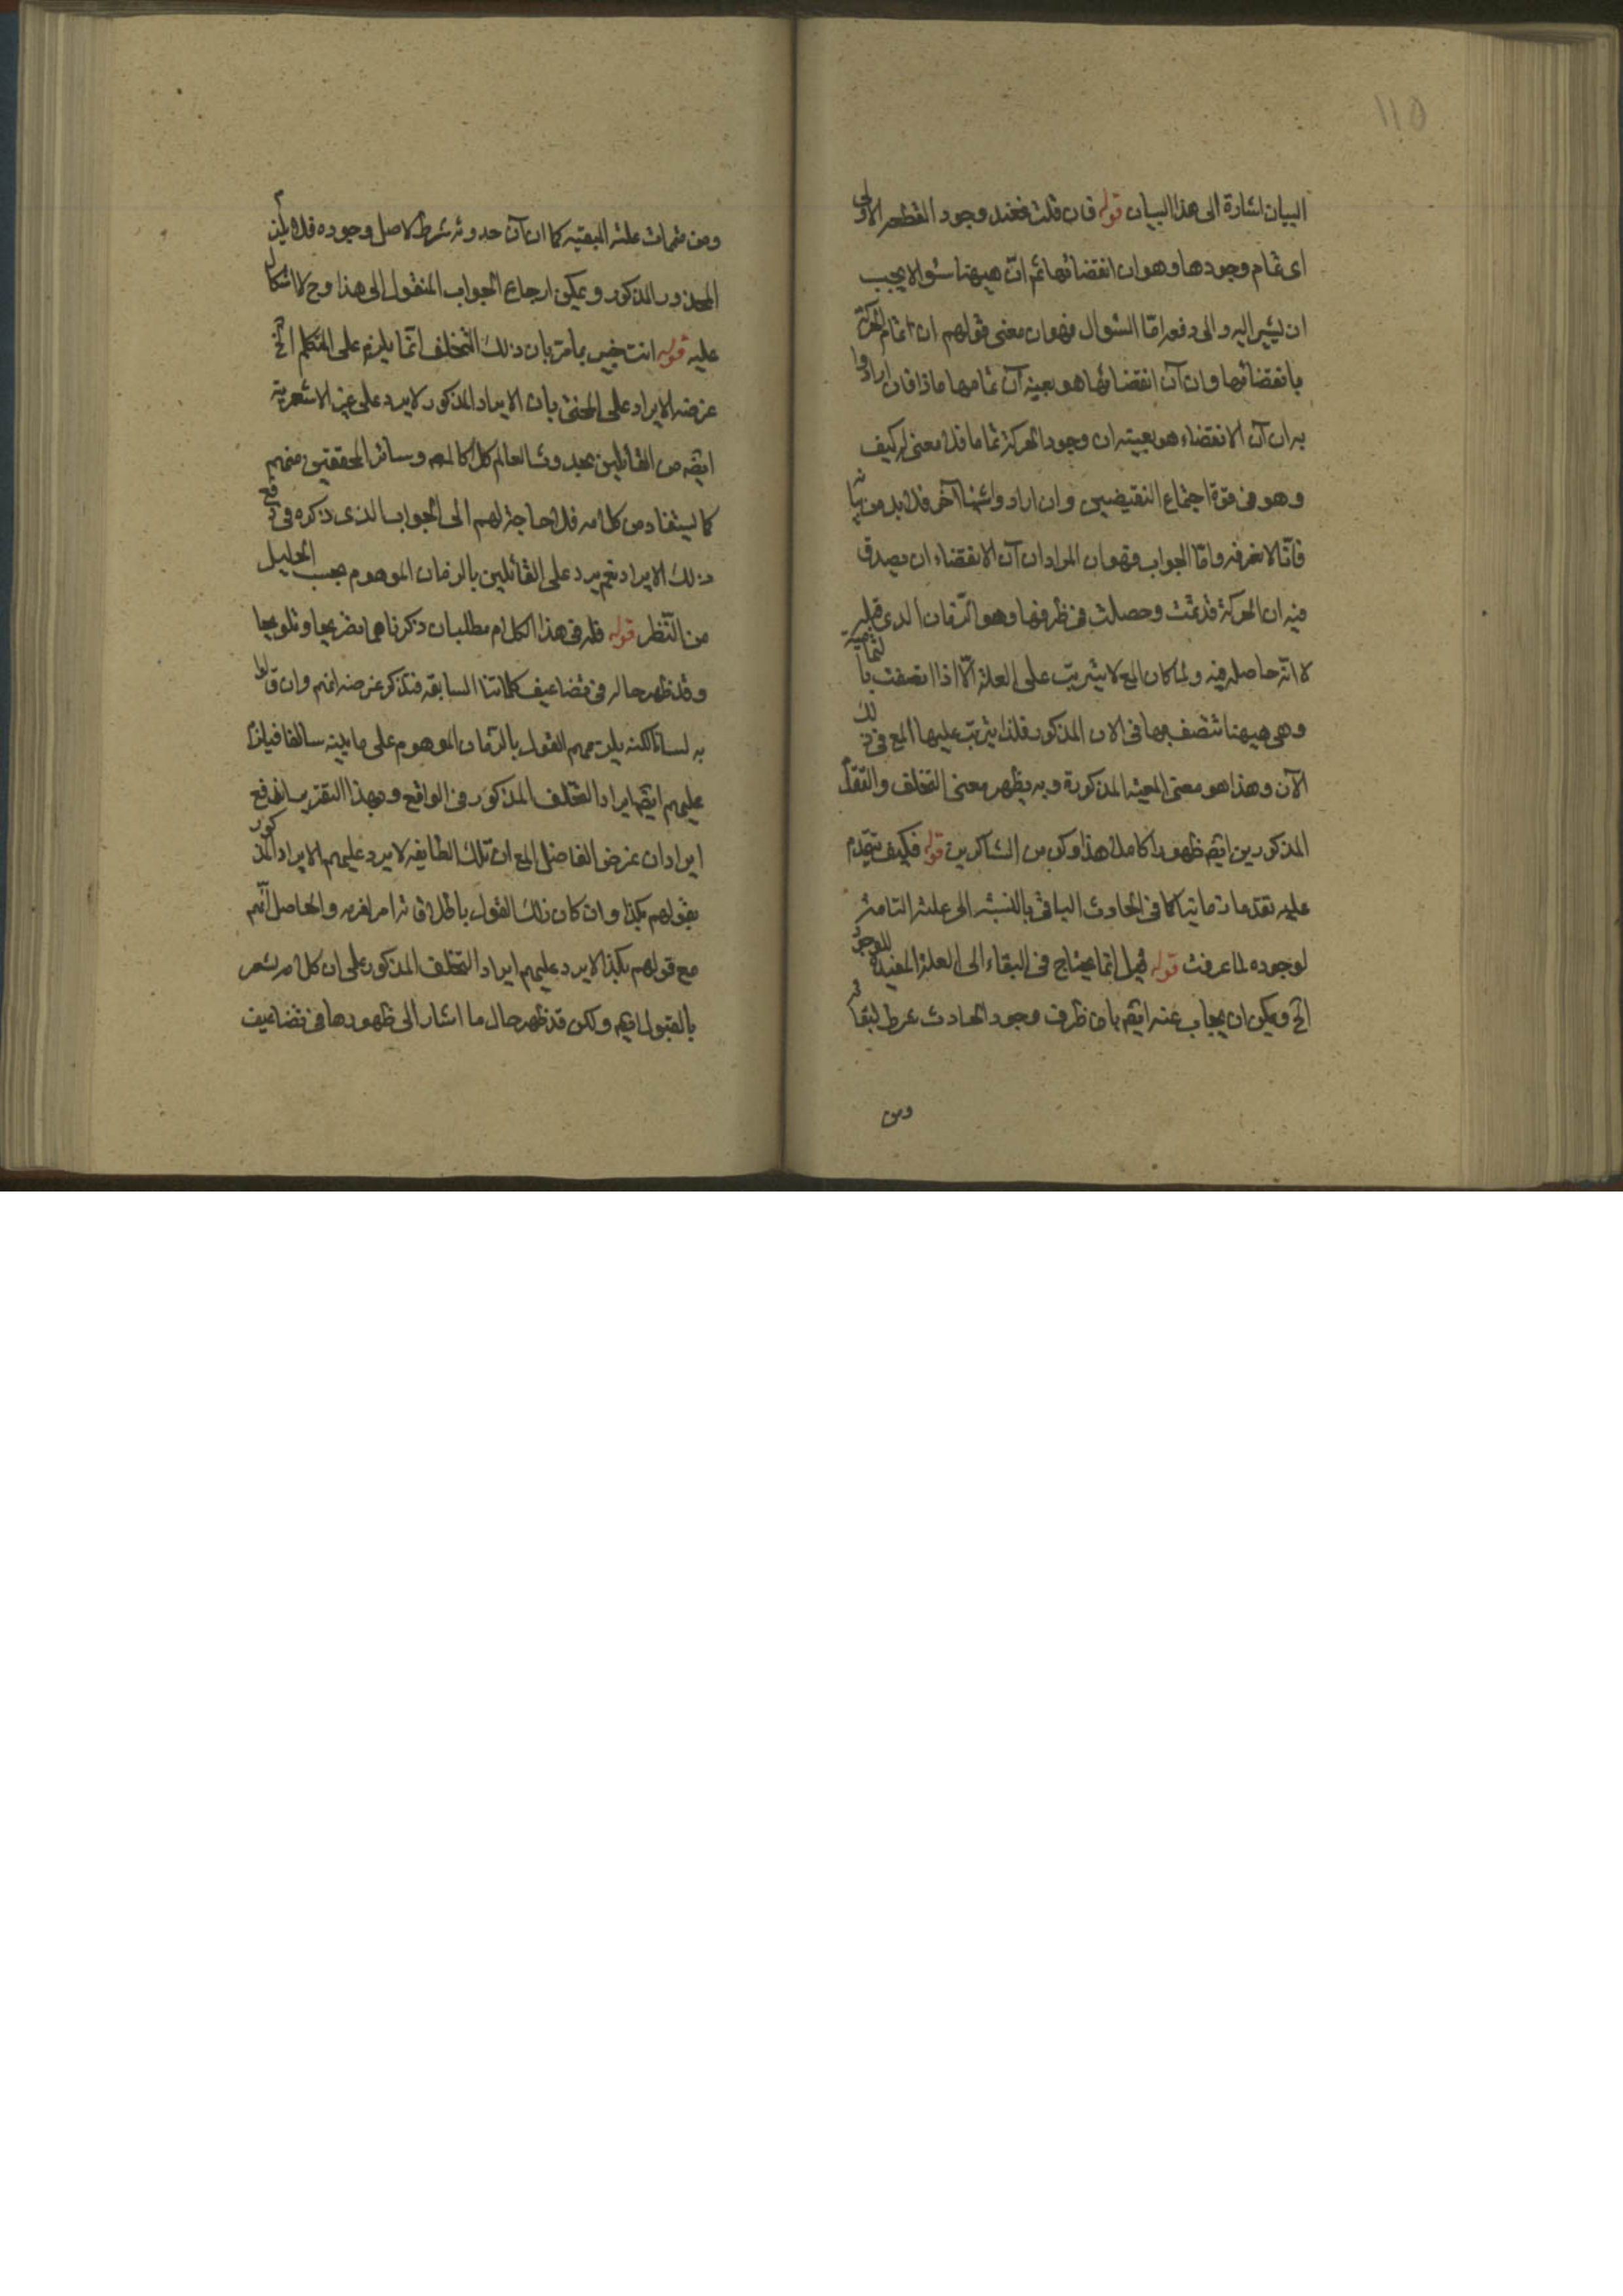 ١١٥
البيان اشارة الى هذا البيان قوله فان قلت فعند وجود القطعة الاولى
اى تمام وجودها وهو ان انقضائها ثم انّ هيهنا سؤالا يجب
ان يشير اليه والى دفعه امّا السّؤال فهو ان معنى قولهم ان اتمام الحركة
بانقضائها وان آن انقضائها هو بعينه آن تمامها ماذا فان ارادوا
به ان آن الانقضاء هو بعينه ان وجود الحركة تماما فلا معنى له كيف
وهو فى قوة اجتماع النقيضين وان ارادوا شيئا آخر فلا بد من
فانّا لا نعرفه وامّا الجواب فهو ان المراد ان آن الانقضاء ان يصدق
فيه ان الحركة قد تمّت وحصلت فى ظرفها وهو الزّمان الذى قبله
لا انّه حاصلة فيه ولما كان المع لا يترتب على العلة الّا اذا اتصفت بالتمامية
وهى هيهنا تتصف بها فى الان المذكور فلذا يترتب عليها المع فى ذلك
الآن وهذا هو معنى المعية المذكورة وبه يظهر معنى التخلف والتقدم
المذكورين ايضه ظهورا كاملا هذا وكن من الشاكرين قوله فكيف يتقدم
عليه تقدما زمانيا كما فى الحادث الباقى بالنسبة الى علته التامة
لوجوده لما عرفت قوله قيل انما يحتاج فى البقاء الى العلة المفيدة للوجود
الخ ويمكن ان يجاب عنه ايضه بان ظرف وجود الحادث شرط لبقائه
ومن
ومن متممات علته المبقيه كما ان آن حدوثه شرط لاصل وجوده فلا يلزم
المحذور المذكور ويمكن ارجاع الجواب المنقول الى هذا وح لا اشكال
عليه قوله انت خبير بما مرّ بان ذلك التخلف انما يلزم على المتكلم الخ
غرضه الايراد على المحشى بان الايراد المذكور لا يرد على غير الاشعرية
ايضه من القائلين بحدوث العالم كله كالمص وسائر المحققين منهم
كما يستفاد من كلامه فلا حاجة لهم الى الجواب الذى ذكره فى دفع
ذلك الايراد نعم يرد على القائلين بالزمان الموهوم بحسب الجليل
من النّظر قوله فله فى هذا الكلام مطلبان ذكرناهما تصريحا وتلويحا
وقد ظهر حاله فى تضاعيف كلماتنا السابقه فتذكر غرضه انهم وان قالوا
به لسانا لكنه يلزمهم القول بالزمان الموهوم على ما بينه سالفا فيلزم
عليهم ايضه ايراد التخلف المذكور فى الواقع وبهذا التقرير اندفع
ايراد ان غرض الفاضل المع ان تلك الطايفه لا يرد عليهم الايراد المذكور
بقولهم بكذا وان كان ذلك القول باطلا فانه امر اخر والحاصل انّهم
مع قولهم بكذا لا يرد عليهم ايراد التخلف المذكور على ان كلامه يشعر
بالقبول ايضه ولكن قد ظهر حال ما اشار الى ظهورها فى تضاعيف